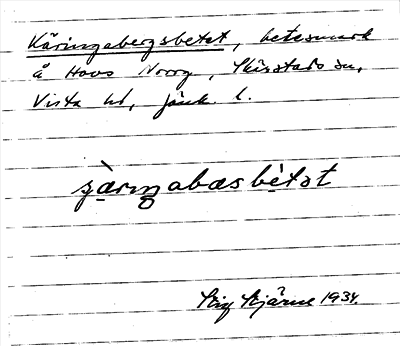 Käringabergsbetet, betesmark
å Hovs Norrg, Skärstads sn,
Vista hd, Jönk. l.
Stig Bjärne 1934.